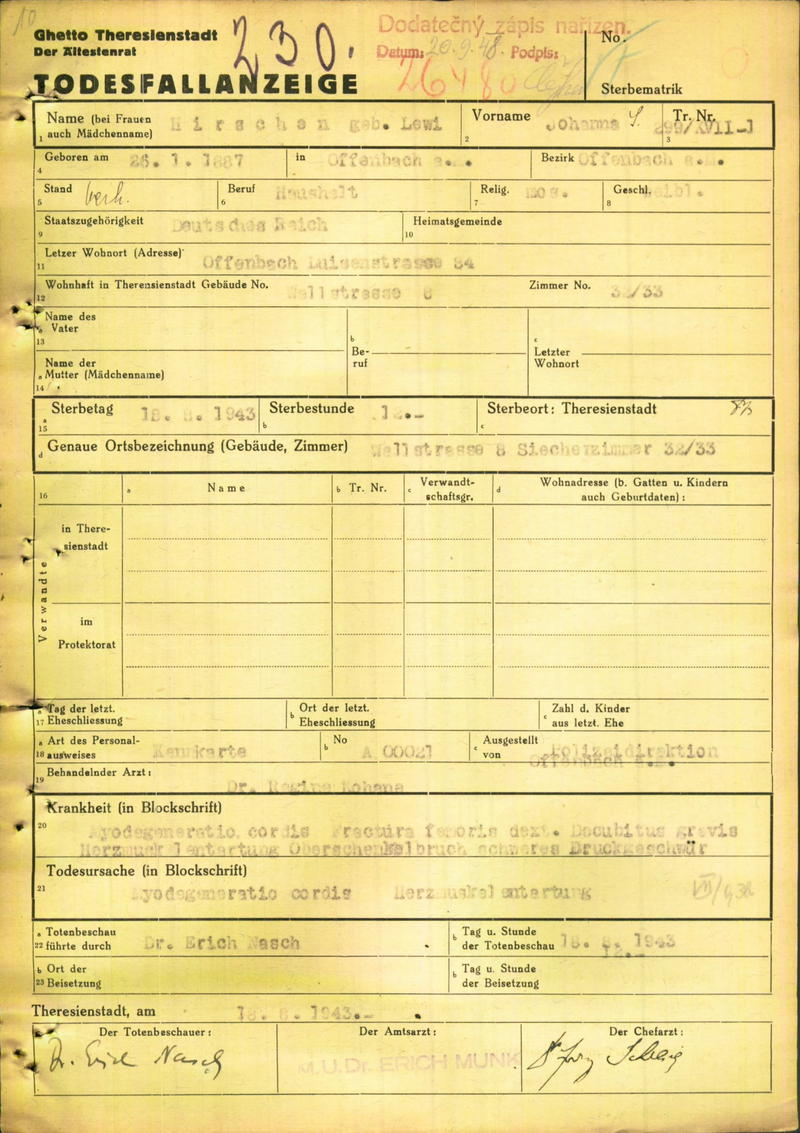 Ghetto Theresienstadt
Der Ältestenrat
TODESFALLANZEIGE
230.
Dodatečný zápis nařízen.
Datum: 20.9.48. Podpis:
26480
No.
Sterbematrik
Name (bei Frauen
1 auch Mädchenname)
Hirschen geb. Lewi
Vorname
2
Johanna S.
Tr. Nr.
3
/XVII-1
Geboren am
4
1887
in
Offenbach a. .
Bezirk
Offenbach a. .
Stand
5
verh.
Beruf
6
Haushalt
Relig.
7
mos.
Geschl.
8
weibl.
Staatszugehörigkeit
9
Deutsches Reich
Heimatsgemeinde
10
Letzer Wohnort (Adresse)
11
Offenbach Luisenstrasse 84
Wohnhaft in Therensienstadt Gebäude No.
12
Wallstrasse 8
Zimmer No.
32/33
a Name des
Vater
13
Name der
a Mutter (Mädchenname)
14
b
Be-
ruf
c
Letzter
Wohnort
Sterbetag
a
15
18. . 1943
Sterbestunde
b
1 .-
Sterbeort: Theresienstadt
c
d Genaue Ortsbezeichnung (Gebäude, Zimmer)
Wallstrasse 8 Siechenzimmer 32/33
16
a Name
b Tr. Nr.
c Verwandt-
schaftsgr.
d Wohnadresse (b. Gatten u. Kindern
auch Geburtdaten) :
Verwandte
in There-
sienstadt
im
Protektorat
a Tag der letzt.
17 Eheschliessung
b Ort der letzt.
Eheschliessung
c Zahl d. Kinder
aus letzt. Ehe
a Art des Personal-
18 ausweises
Kennkarte
b No
A 00021
c Ausgestellt
von
Polizeidirektion
Offenbach a. .
19
Behandelnder Arzt :
Dr. Regina Kohane
Krankheit (in Blockschrift)
20
Myodegeneratio cordis Fractura femoris dext. Decubitus gravis
Herzmuskelentartung Oberschenkelbruch schweres Druckgeschwür
Todesursache (in Blockschrift)
21
Myodegeneratio cordis Herzmuskelentartung
a Totenbeschau
22 führte durch
Dr. Erich Nasch
b Tag u. Stunde
der Totenbeschau
18. . 1943
b Ort der
23 Beisetzung
b Tag u. Stunde
der Beisetzung
Theresienstadt, am
18. 8. 1943.-
Der Totenbeschauer :
Dr. Erich Nasch
Der Amtsarzt :
M.U.Dr. ERICH MUNK
Der Chefarzt :